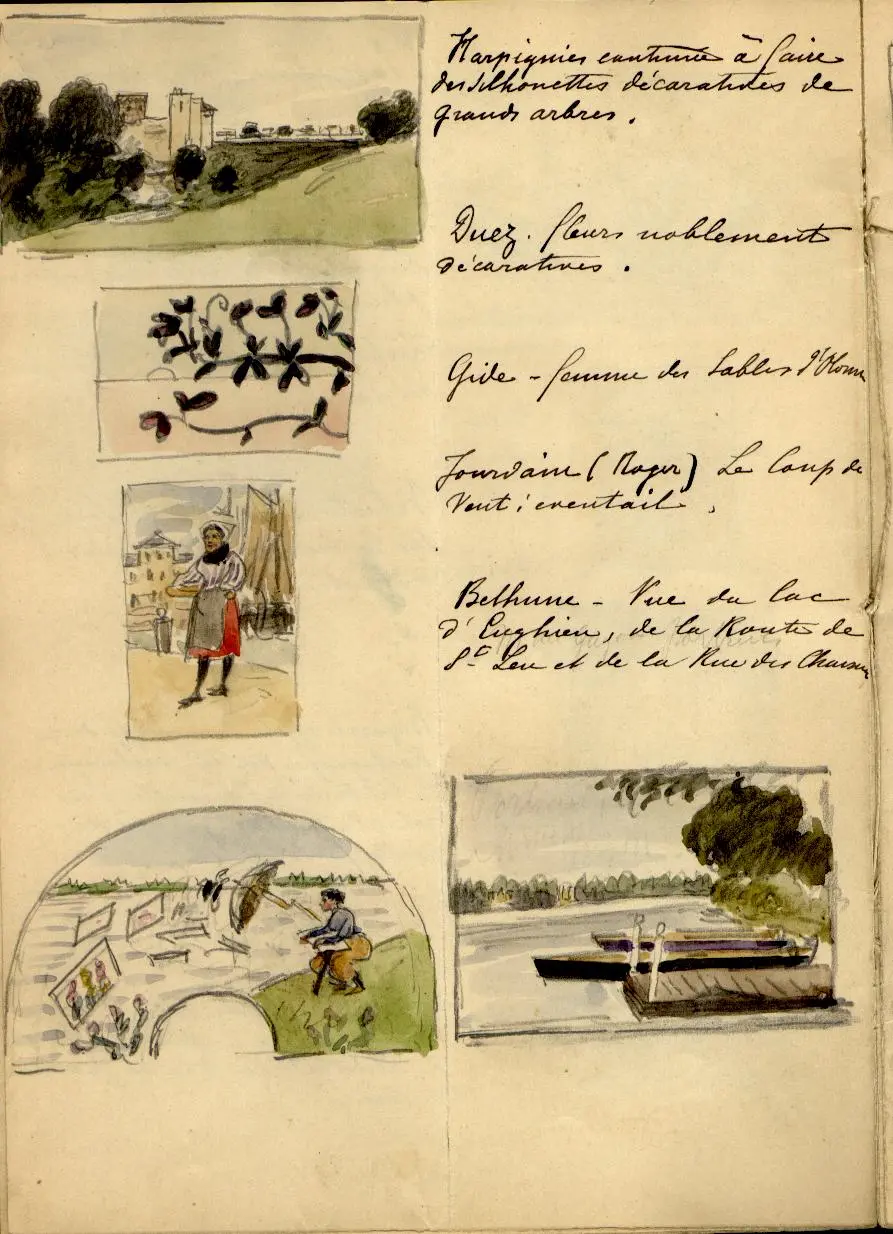 Harpignies continue à faire
des silhouettes décoratives de
grands arbres.
Duez. fleurs noblement
décoratives.
Gide - femme des Sables d'Olonne
Jourdain (Roger) Le Coup de
Vent: eventail.
Bethune - Vue du lac
d'Enghien, de la Route de
St Leu et de la Rue des